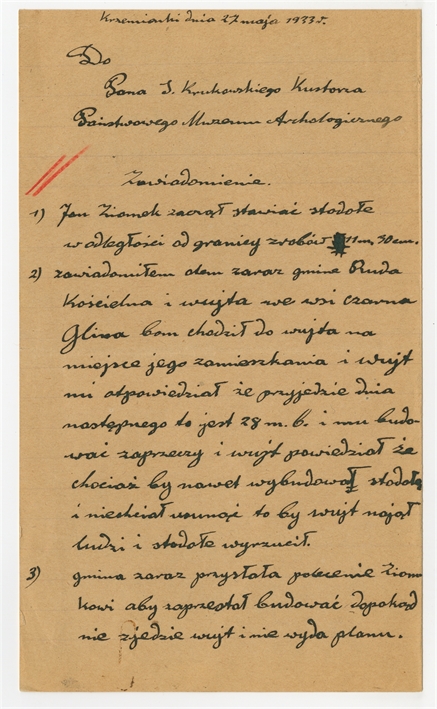 Krzemionki dnia 27 maja 1933 r.
Do
Pana S. Krukowskiego Kustorza
Państwowego Muzeum Archologicznego
Zawiadomienie.
1) Jan Ziomek zaczął stawiać stodołe
w odległości od granicy zrobów 11 m, 50 cm.
2) zawiadomiłem otem zaraz gmine Ruda
Kościelna i wujta we wsi Czarna
Glina bom chodził do wujta na
miejsce jego zamieszkania i wujt
mi otpowiedział że przyjedzie dnia
następnego to jest 28 m. b. i mu budo-
wać zaprzeczy i wujt powiedział że
chociaż by nawet wybudował stodołę
i niechciał usunąć to by wujt najął
ludzi i stodołe wyrzucił.
3) gmina zaraz przysłała polecenie Ziom
kowi aby zaprzestał budować dopokąd
nie zjedzie wujt i nie wyda planu.